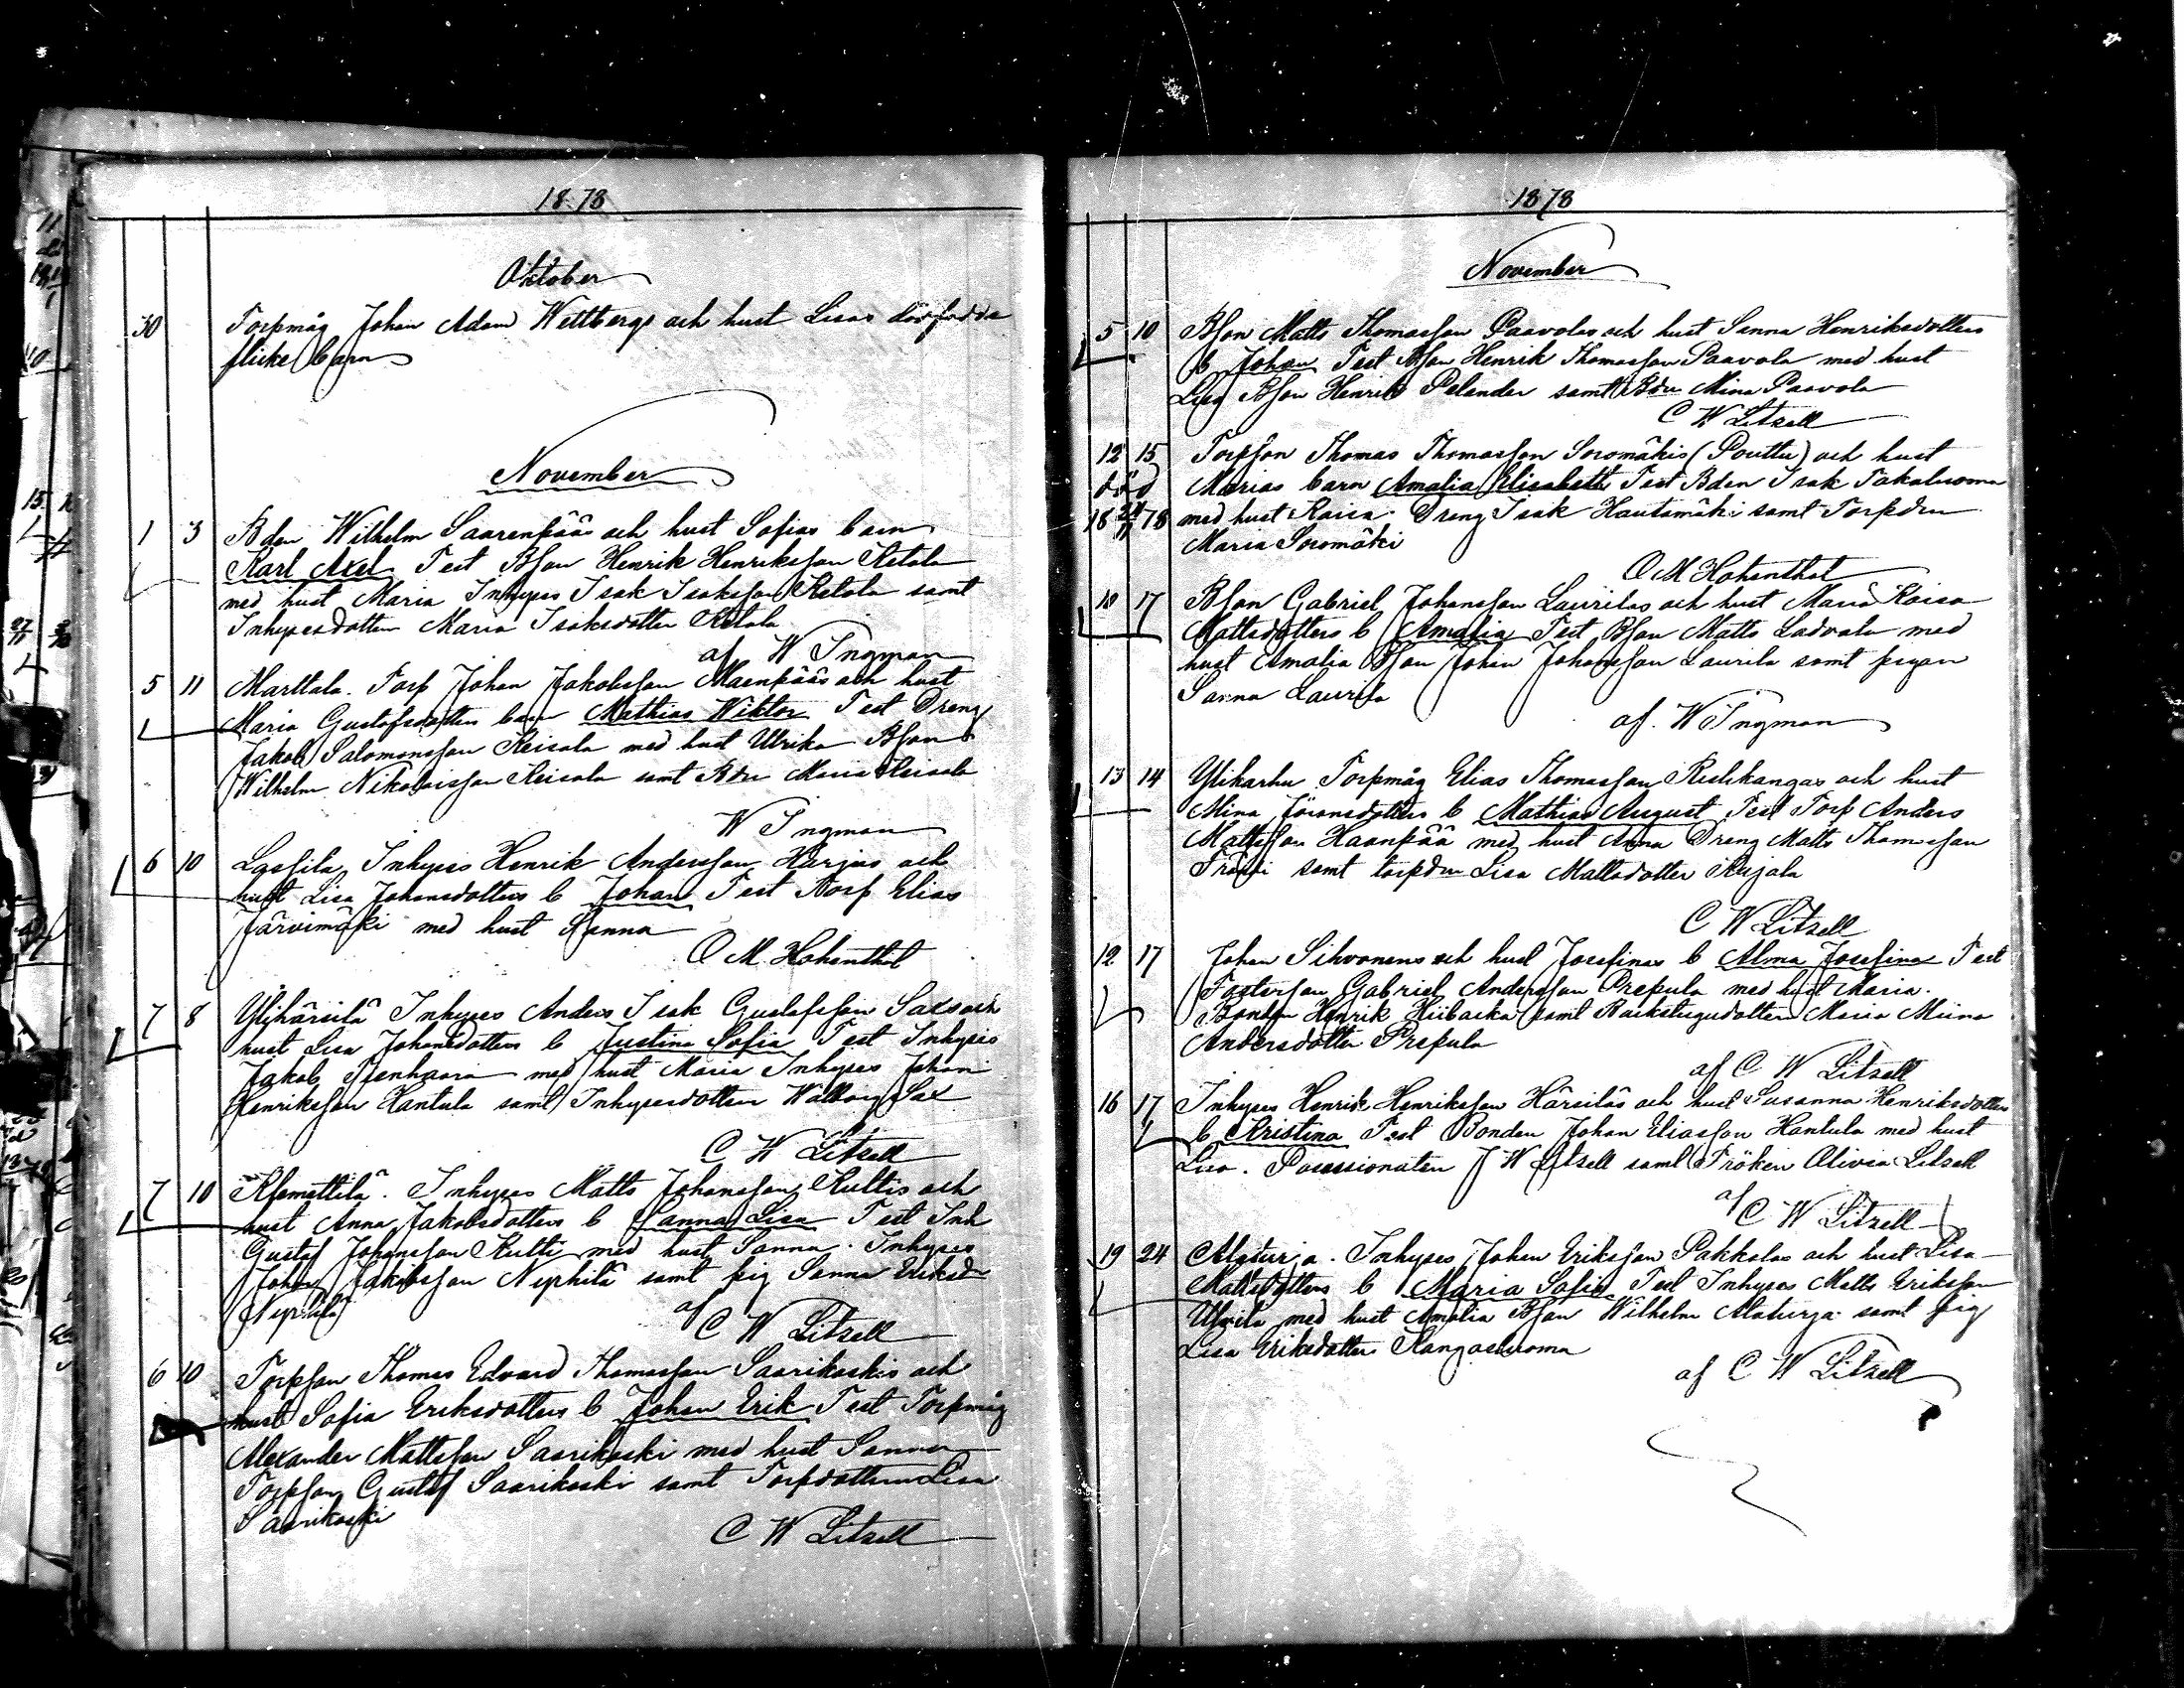 1878
Oktober
30 Torpmåg Johan Adam Wettbergs och hust Lisas dödfödda
flickebarn
November
1 3 Bden Wilhelm Saarenpääs och hust Sofias barn
Karl Axel Test Bson Henrik Henriksson Ketola
med hust Maria Inhyses Isak Isaksson Ketola samt
Inhysesdottern Maria Isaksdotter Ketola
af W Ingman
5 11 Marttala. Torp Johan Jakobsson Maenpääs och hust
Maria Gustafsdotters barn Mathias Wiktor Test Dreng
Jakob Salomonsson Keisala med hust Ulrika Bson
Wilhelm Nikolaisson Keisala samt Bdn Maria Keisala
W Ingman
6 10 Lassila Inhyses Henrik Andersson Harjus och
hust Lisa Johansdotters b Johan Test Torp Elias
Järvimäki med hust Sanna
O M Hohenthal
7 8 Ylihärsilä Inhyses Anders Isak Gustafsson Sax och
hust Lisa Johansdotters b Justina Sofia Test Inhyses
Jakob med hust Maria Inhyses Johan
Henriksson Hantula samt Inhysesdottern Walborg Sax
C W Litzell
7 10 Inhyses Matts Johansson Kultis och
hust Anna Jakobsdotters b Sanna Lisa Test Inh
Gustaf Johansson Kulti med hust Sanna. Inhyses
Johan Jakobsson Nephilä samt pig Sanna Eriksd
Nephilä
af C W Litzell
6 10 Torpson Thomas Edvard Thomasson Saarikoskis och
hust Sofia Eriksdotters b Johan Erik Test Torpmåg
Alexander Mattsson Saarikoski med hust Sanna
Torpson Gustaf Saarikoski samt Torpdottern Lisa
Saarikoski
C W Litzell
1878
November
5 10 Bson Matts Thomasson Paavolas och hust Sanna Henriksdotters
b Johan Test Bson Henrik Thomasson Paavola med hust
Lisa Bson Henrik Pelander samt Bdn Mina Paavola
C W Litzell
12 15 Torpson Thomas Thomasson Soromäkis (Pouttu) och hust
död Marias barn Amalia Elisabeth Test Bden Isak Takaluoma
18 24/11 78 med hust Kaisa. Dreng Isak Hautamäki samt Torpdrn
Maria Soromäki
O M Hohenthal
10 17 Bson Gabriel Johansson Laurilas och hust Maria Kaisa
Mattsdotters b Amalia Test Bson Matts Ladvala med
hust Amalia Bson Johan Johansson Laurila samt pigan
Sanna Laurila
af. W Ingman
13 14 Ylikarhu Torpmåg Elias Thomasson Ruhkangas och hust
Mina Göransdotters b Mathias August Test Torp Anders
Mattsson Haanpää med hust Anna Dreng Matts Thomasson
samt torpdrn Lisa Mattsdotter Kujala
C W Litzell
12 17 Johan Sihvonens och hust Josefinas b Alma Josefina Test
Fosterson Gabriel Andersson Prepula med hust Maria.
Bonden Henrik Hiibacka samt Backstugudottern Maria Miina
Andersdotter Prepula
af C W Litzell
16 17 Inhyses Henrik Henriksson Härsiläs och hust Susanna Henriksdotters
b Kristina Test Bonden Johan Eliasson Hantula med hust
Lisa. Possessionaten J W Litzell samt Fröken Olivia Litzell
af C W Litzell
19 24 Alaturja. Inhyses Johan Eriksson Pakkalas och hust Lisa
Mattsdotters b Maria Sofia Test Inhyses Matts Eriksson
med hust Amalia Bson Wilhelm Alaturja samt pig
Lisa Eriksdotter Kangasluoma
af C W Litzell